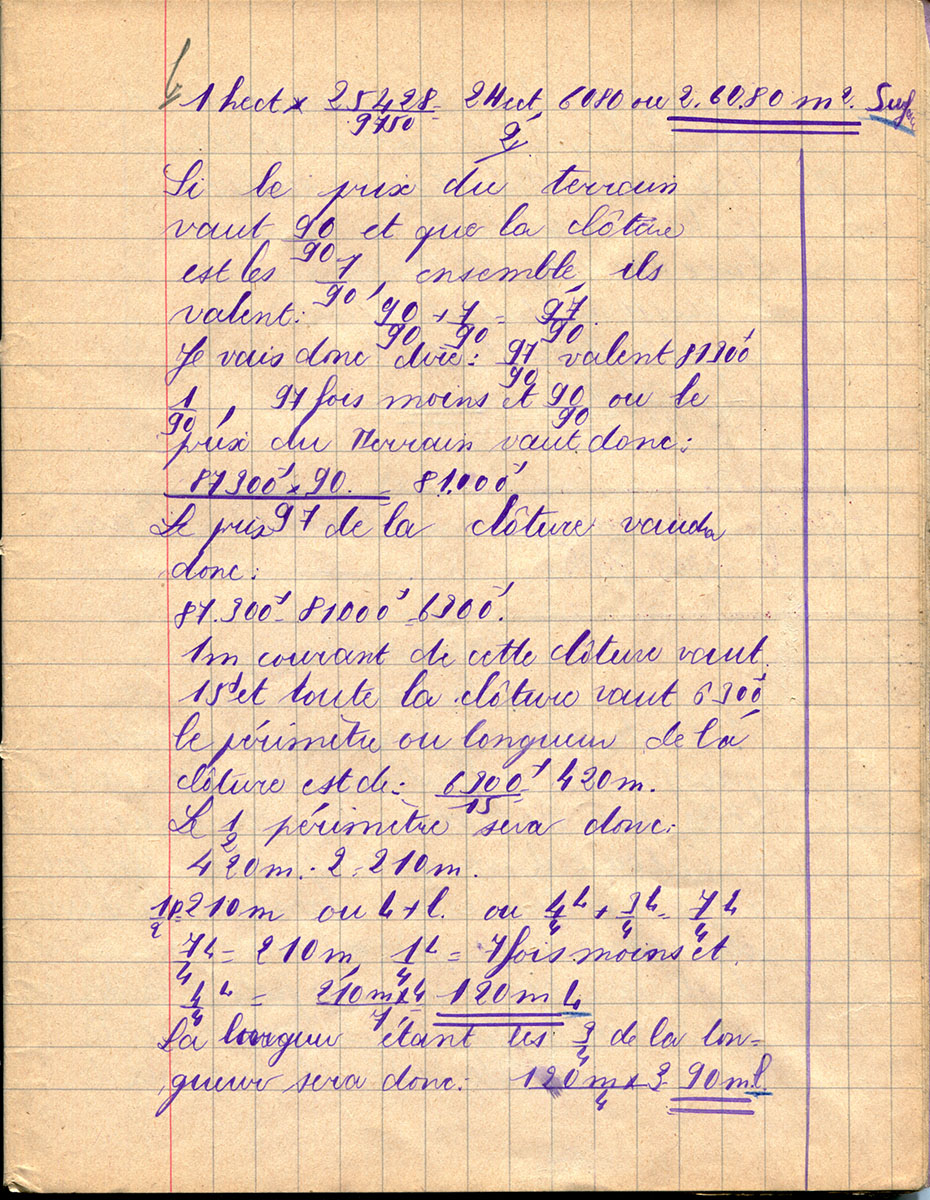 1 hect × 25428 / 9750 = 2 Hect, 6080 ou 2.60.80 m². Surf
2
Si le prix du terrain
vaut 90/90 et que la clôture
est les 7/90, ensemble ils
valent: 90/90 + 7/90 = 97/90.
Je vais donc dire: 97/90 valent 87300f
1/90, 97 fois moins et 90/90 ou le
prix du Terrain vaut donc:
87300f × 90 / 97 = 81.000f
Le prix de la clôture vaudra
donc:
87.300f - 81000f = 6300f.
1m courant de cette clôture vaut
15f et toute la clôture vaut 6300f
le périmètre ou longueur de la
clôture est de: 6300f / 15 = 420m.
Le 1/2 périmètre sera donc:
420m : 2 = 210m.
1/2 p = 210m ou L + l. ou 4/4 L + 3/4 L = 7/4 L
7/4 L = 210m, 1/4 L = 7 fois moins et
4/4 L = 210m × 4 / 7 = 120m L
La largeur étant les 3/4 de la lon=
gueur sera donc: 120m × 3 / 4 = 90m l.